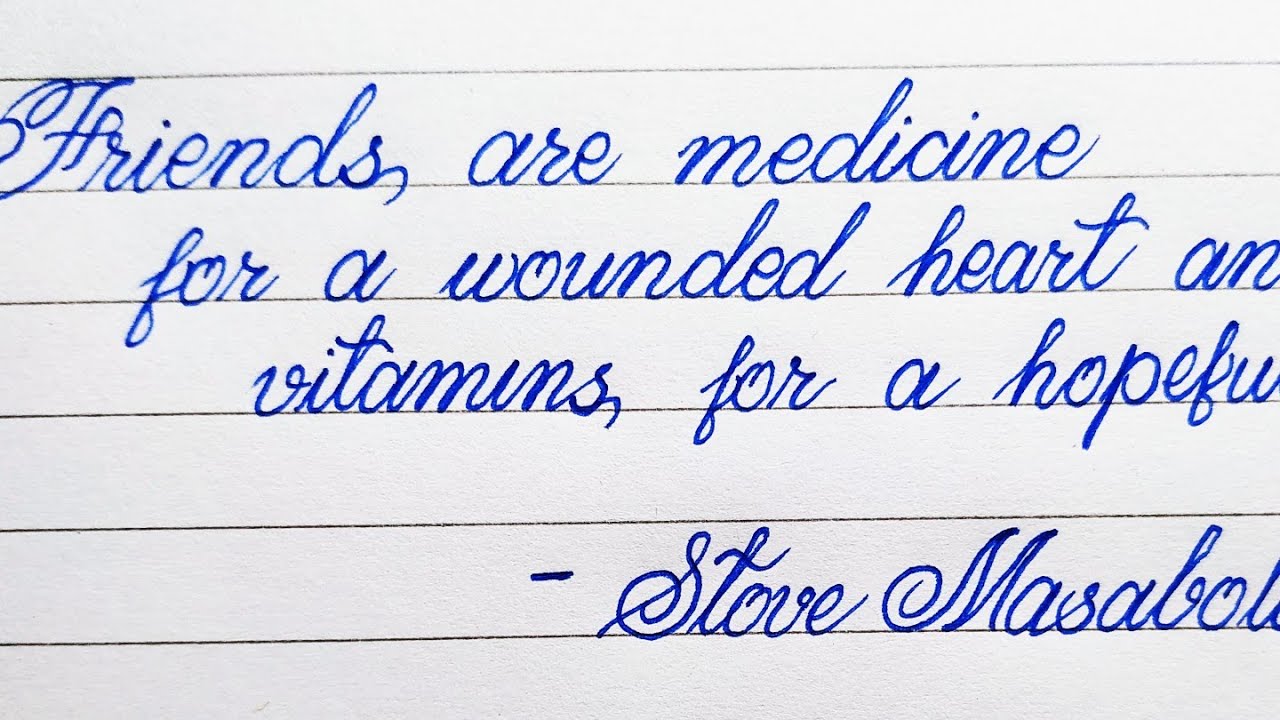 Friends, are medicine
for a wounded heart an
vitamins, for a hopefu
- Stove Masabol